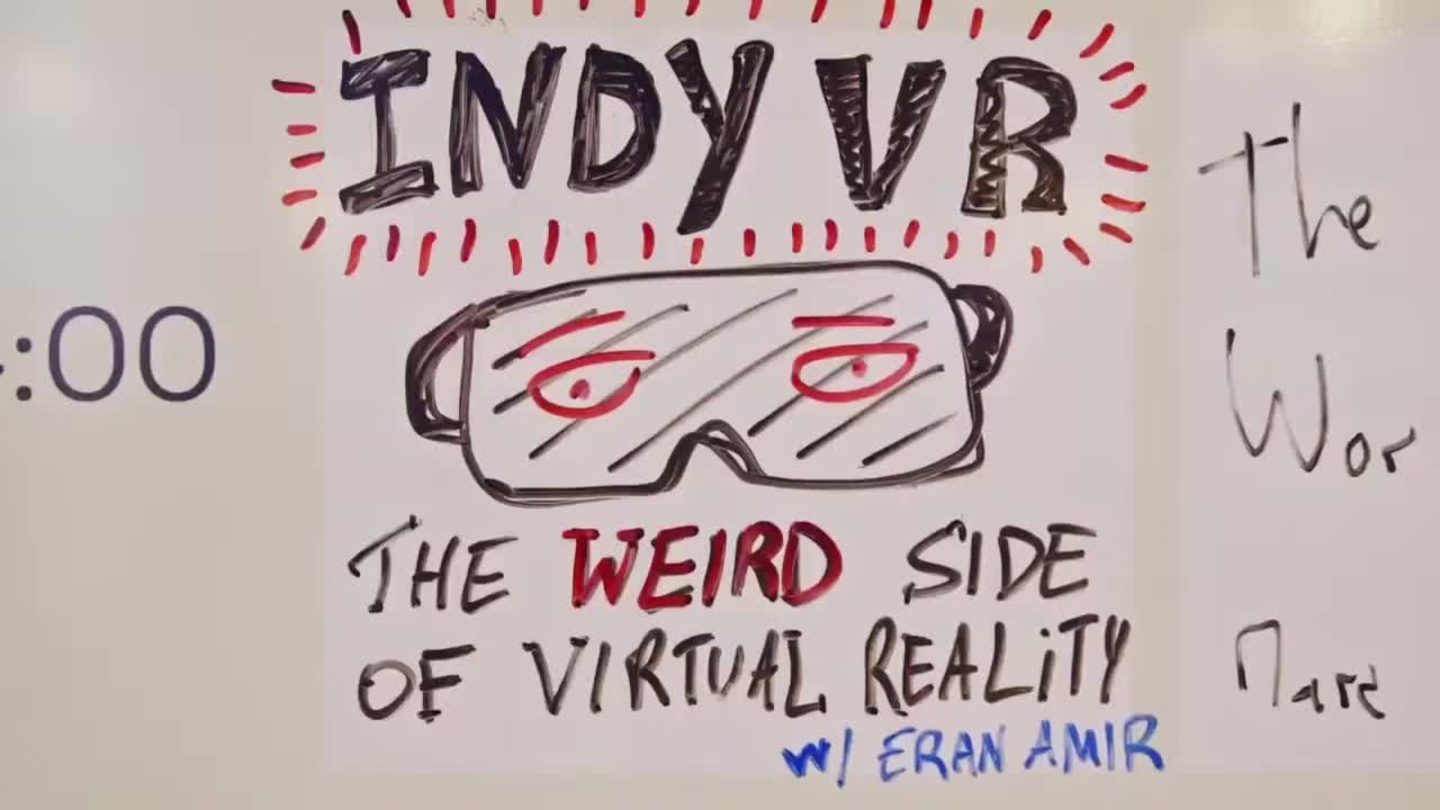 INDY VR
:00
THE WEIRD SIDE
OF VIRTUAL REALITY
w/ ERAN AMIR
The
Wor